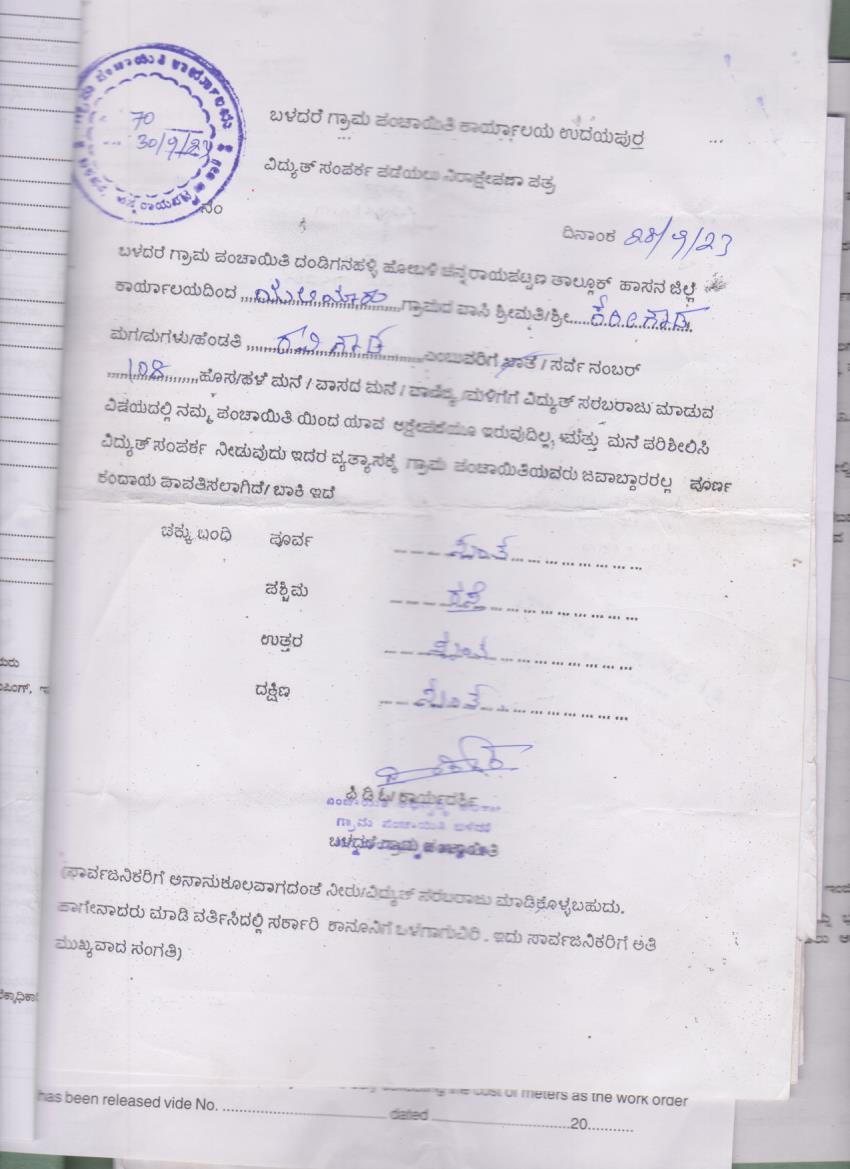 70
30/9/23
ಬಳದರೆ ಗ್ರಾಮ ಪಂಚಾಯಿತಿ ಕಾರ್ಯಾಲಯ ಉದಯಪುರ
ವಿದ್ಯುತ್ ಸಂಪರ್ಕ ಪಡೆಯಲು ನಿರಾಕ್ಷೇಪಣಾ ಪತ್ರ
ನಂ
ದಿನಾಂಕ 28/9/23
ಬಳದರೆ ಗ್ರಾಮ ಪಂಚಾಯಿತಿ ದಂಡಿಗನಹಳ್ಳಿ ಹೋಬಳಿ ಚನ್ನರಾಯಪಟ್ಟಣ ತಾಲ್ಲೂಕ್ ಹಾಸನ ಜಿಲ್ಲೆ
ಕಾರ್ಯಾಲಯದಿಂದ ಗ್ರಾಮದ ವಾಸಿ ಶ್ರೀಮತಿ/ಶ್ರೀ.....
ಮಗ/ಮಗಳು/ಹೆಂಡತಿ ರವಿ ಎಂಬುವರಿಗೆ ಖಾತೆ / ಸರ್ವೆ ನಂಬರ್
108 ಹೊಸ/ಹಳೆ ಮನೆ / ವಾಸದ ಮನೆ / ವಾಣಿಜ್ಯ /ಮಳಿಗೆಗೆ ವಿದ್ಯುತ್ ಸರಬರಾಜು ಮಾಡುವ
ವಿಷಯದಲ್ಲಿ ನಮ್ಮ ಪಂಚಾಯಿತಿ ಯಿಂದ ಯಾವ ಆಕ್ಷೇಪಣೆಯೂ ಇರುವುದಿಲ್ಲ, ಮತ್ತು ಮನೆ ಪರಿಶೀಲಿಸಿ
ವಿದ್ಯುತ್ ಸಂಪರ್ಕ ನೀಡುವುದು ಇದರ ವ್ಯತ್ಯಾಸಕ್ಕೆ ಗ್ರಾಮ ಪಂಚಾಯಿತಿಯವರು ಜವಾಬ್ದಾರರಲ್ಲ ಪೂರ್ಣ
ಕಂದಾಯ ಪಾವತಿಸಲಾಗಿದೆ/ ಬಾಕಿ ಇದೆ
ಚಕ್ಕು ಬಂಧಿ ಪೂರ್ವ
ಪಶ್ಚಿಮ ರಸ್ತೆ
ಉತ್ತರ
ದಕ್ಷಿಣ
ಪಿ ಡಿ ಓ/ ಕಾರ್ಯದರ್ಶಿ
ಗ್ರಾಮ ಪಂಚಾಯಿತಿ ಬಳದರೆ
ಬಳದರೆ ಗ್ರಾಮ ಪಂಚಾಯಿತಿ
(ಸಾರ್ವಜನಿಕರಿಗೆ ಅನಾನುಕೂಲವಾಗದಂತೆ ನೀರು/ವಿದ್ಯುತ್ ಸರಬರಾಜು ಮಾಡಿಕೊಳ್ಳಬಹುದು.
ಹಾಗೇನಾದರು ಮಾಡಿ ವರ್ತಿಸಿದಲ್ಲಿ ಸರ್ಕಾರಿ ಕಾನೂನಿಗೆ ಒಳಗಾಗುವಿರಿ . ಇದು ಸಾರ್ವಜನಿಕರಿಗೆ ಅತಿ
ಮುಖ್ಯವಾದ ಸಂಗತಿ)
the cost of meters as the work order
has been released vide No. ........................ dated ........................20...........